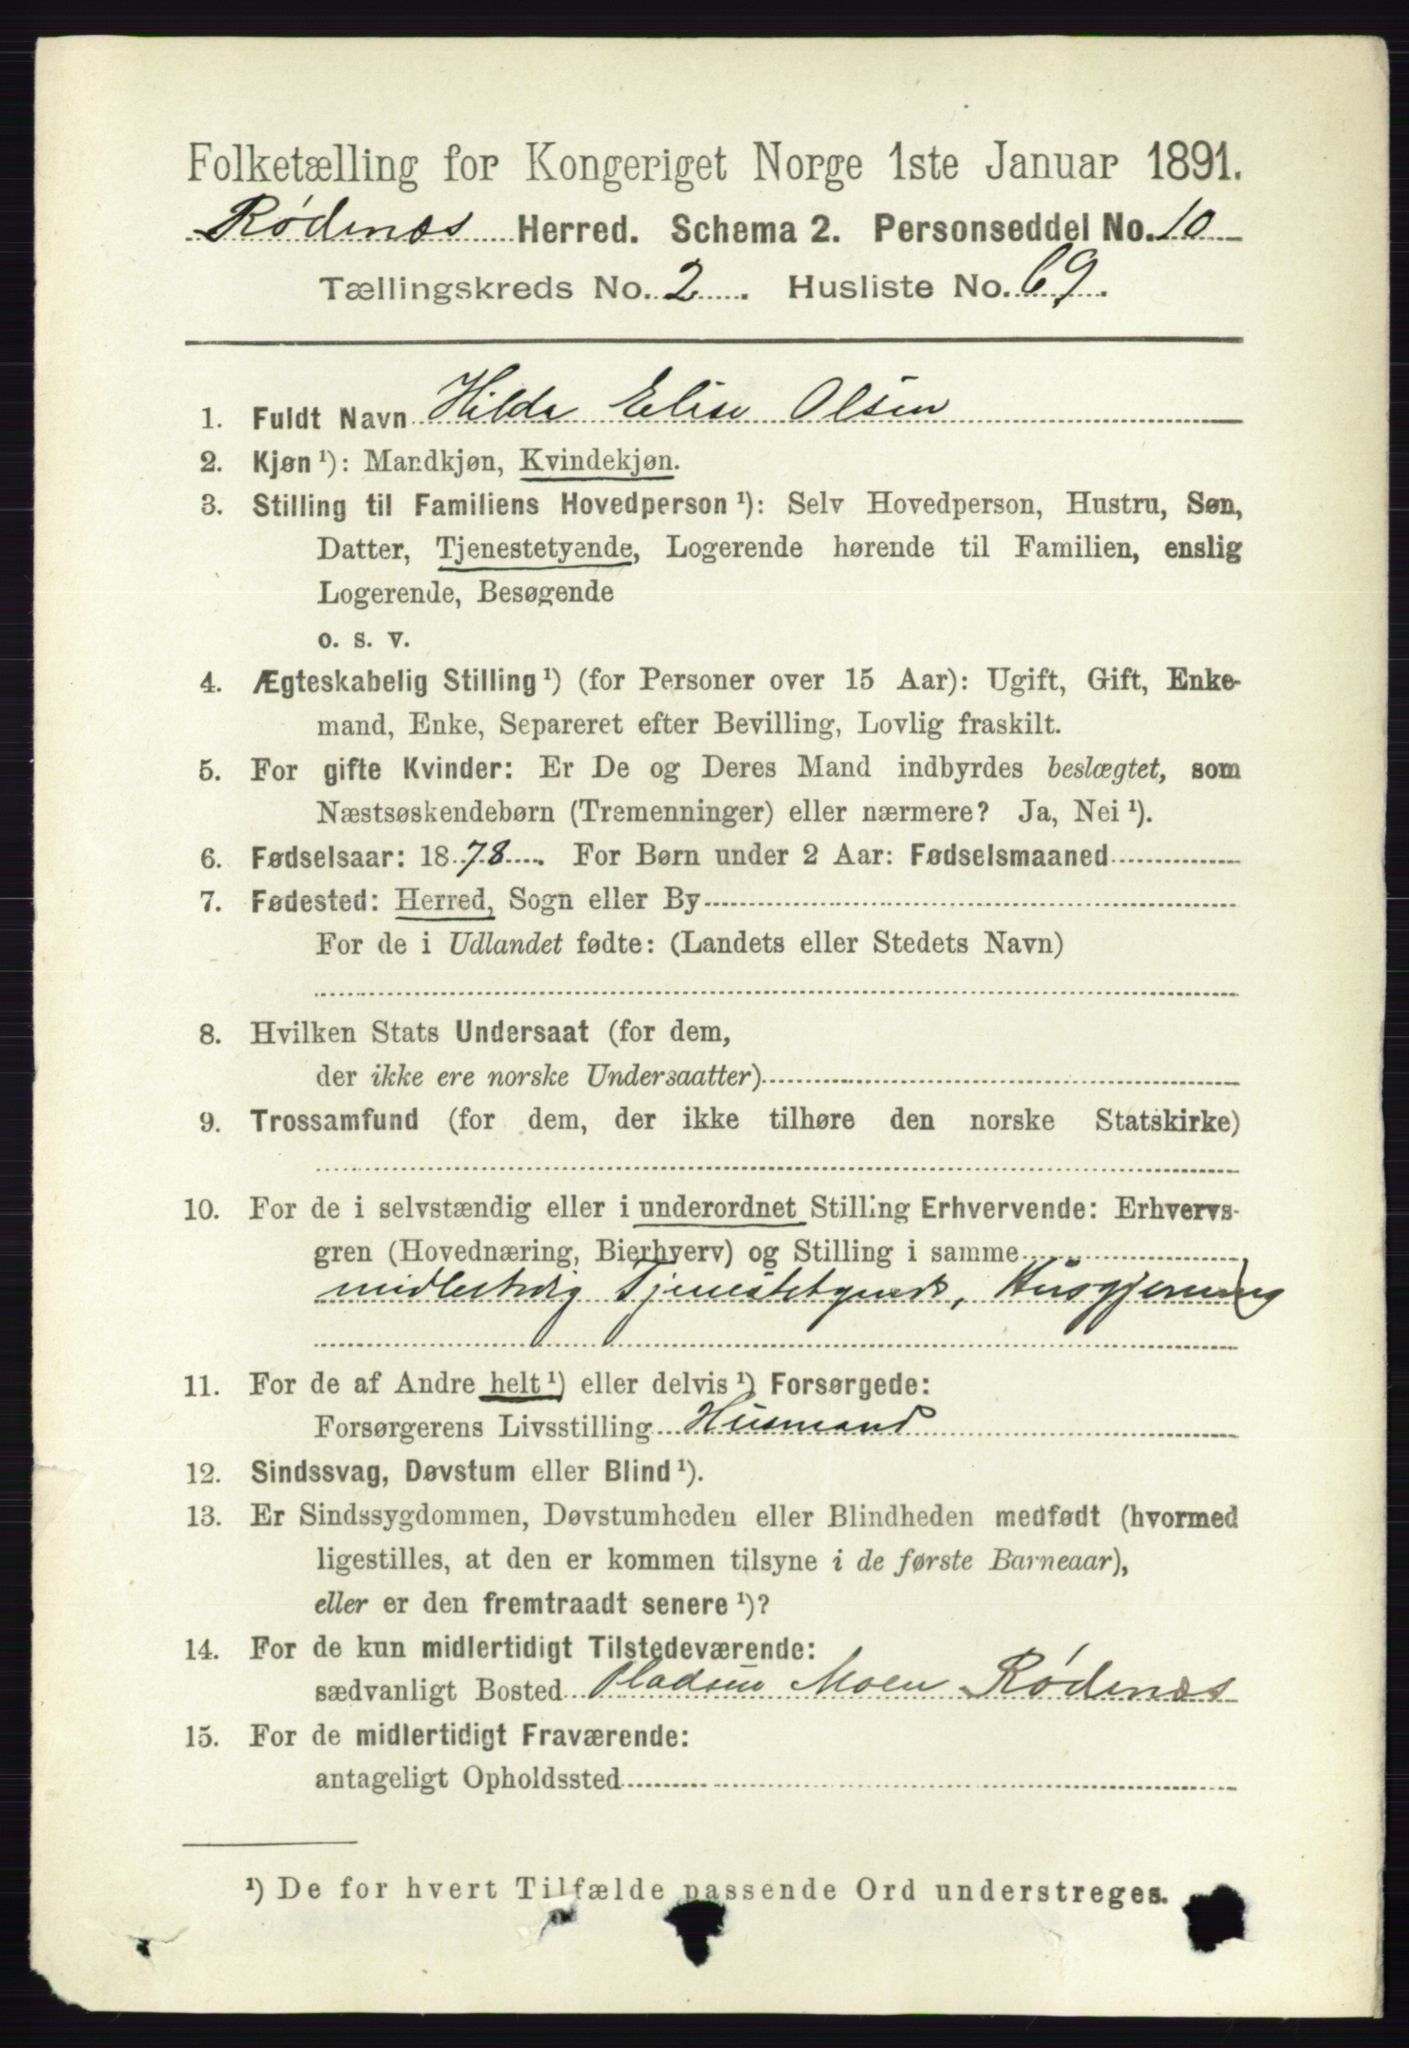 Folketælling for Kongeriget Norge 1ste Januar 1891.
Rødenæs Herred. Schema 2. Personseddel No. 10
Tællingskreds No. 2. Husliste No. 69.
1. Fuldt Navn Hilda Elise Olsen
2. Kjøn ¹): Mandkjøn, Kvindekjøn.
3. Stilling til Familiens Hovedperson ¹): Selv Hovedperson, Hustru, Søn,
Datter, Tjenestetyende, Logerende hørende til Familien, enslig
Logerende, Besøgende
o. s. v.
4. Ægteskabelig Stilling ¹) (for Personer over 15 Aar): Ugift, Gift, Enke-
mand, Enke, Separeret efter Bevilling, Lovlig fraskilt.
5. For gifte Kvinder: Er De og Deres Mand indbyrdes beslægtet, som
Næstsøskendebørn (Tremenninger) eller nærmere? Ja, Nei ¹).
6. Fødselsaar: 1878. For Børn under 2 Aar: Fødselsmaaned
7. Fødested: Herred, Sogn eller By
For de i Udlandet fødte: (Landets eller Stedets Navn)
8. Hvilken Stats Undersaat (for dem,
der ikke ere norske Undersaatter)
9. Trossamfund (for dem, der ikke tilhøre den norske Statskirke)
10. For de i selvstændig eller i underordnet Stilling Erhvervende: Erhvervs-
gren (Hovednæring, Bierhverv) og Stilling i samme
midlertidig Tjenestetyende, Husgjerning
11. For de af Andre helt ¹) eller delvis ¹) Forsørgede:
Forsørgerens Livsstilling Husmand
12. Sindssvag, Døvstum eller Blind ¹).
13. Er Sindssygdommen, Døvstumheden eller Blindheden medfødt (hvormed
ligestilles, at den er kommen tilsyne i de første Barneaar),
eller er den fremtraadt senere ¹)?
14. For de kun midlertidigt Tilstedeværende:
sædvanligt Bosted Pladsen Moen Rødenæs
15. For de midlertidigt Fraværende:
antageligt Opholdssted
¹) De for hvert Tilfælde passende Ord understreges.